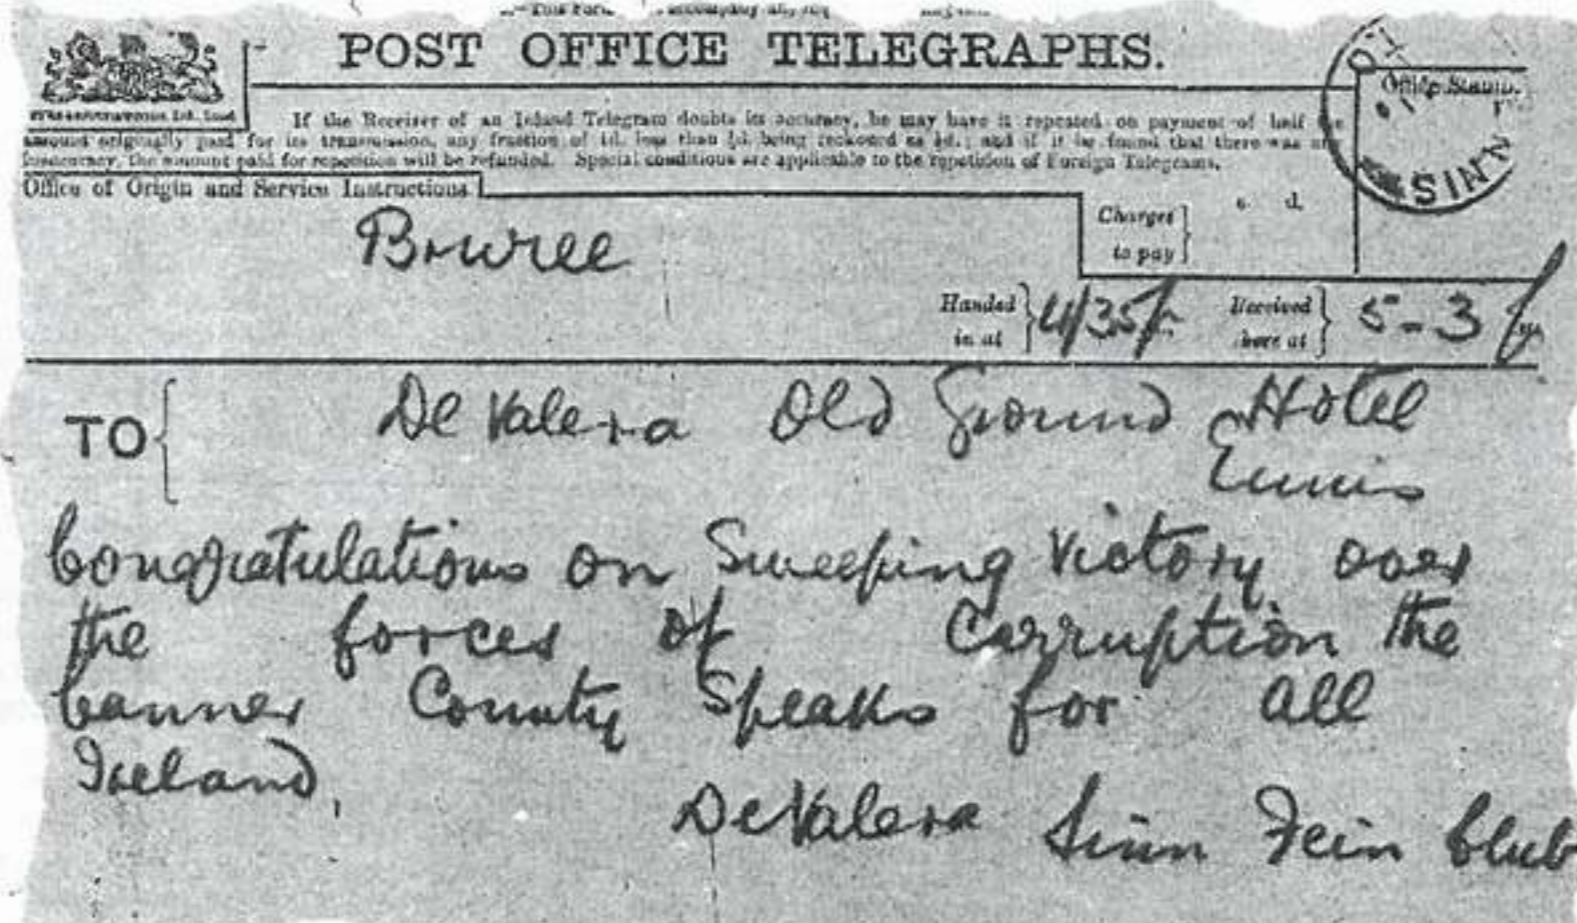 POST OFFICE TELEGRAPHS.
If the Receiver of an Inland Telegram doubts its accuracy, he may have it repeated on payment of half the
amount originally paid for its transmission, any fraction of 1d. less than ½d. being reckoned as ½d.; and if it be found that there was any
inaccuracy, the amount paid for repetition will be refunded. Special conditions are applicable to the repetition of Foreign Telegrams.
Office Stamp.
ENNIS
Office of Origin and Service Instructions
Charges to pay
s. d.
Bruree
Handed in at 4/35
Received here at 5-3
TO De Valera Old Ground Hotel
Ennis
Congratulations on Sweeping Victory over
the forces of Corruption the
banner County Speaks for all
Ireland,
De Valera Sinn Fein Club